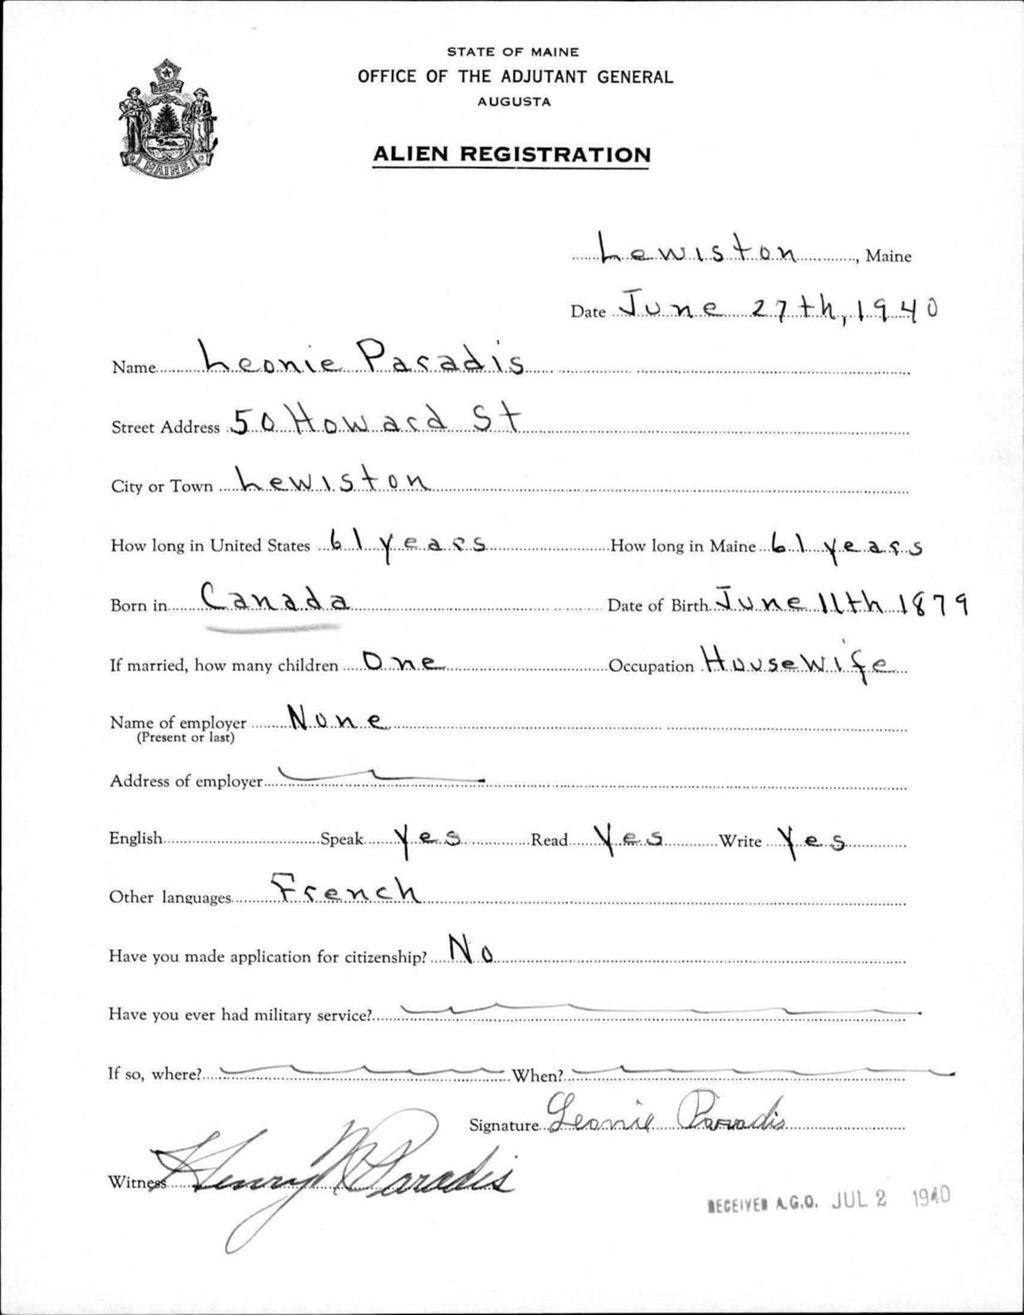 STATE OF MAINE
OFFICE OF THE ADJUTANT GENERAL
AUGUSTA
ALIEN REGISTRATION
MAINE
Lewiston, Maine
Date June 27th, 1940
Name Leonie Paradis
Street Address 50 Howard St
City or Town Lewiston
How long in United States 61 years How long in Maine 61 years
Born in Canada Date of Birth June 11th 1879
If married, how many children One Occupation Housewife
Name of employer None
(Present or last)
Address of employer
English Speak Yes Read Yes Write Yes
Other languages French
Have you made application for citizenship? No
Have you ever had military service?
If so, where? When?
Signature Leonie Paradis
Witness Henry N Paradis
RECEIVED A.G.O. JUL 2 1940